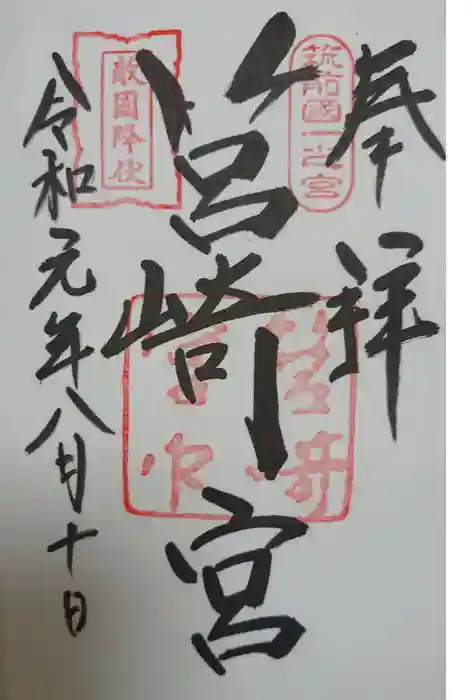 奉拝
筑前國一之宮
筥崎宮
敵国降伏
令和元年八月十日